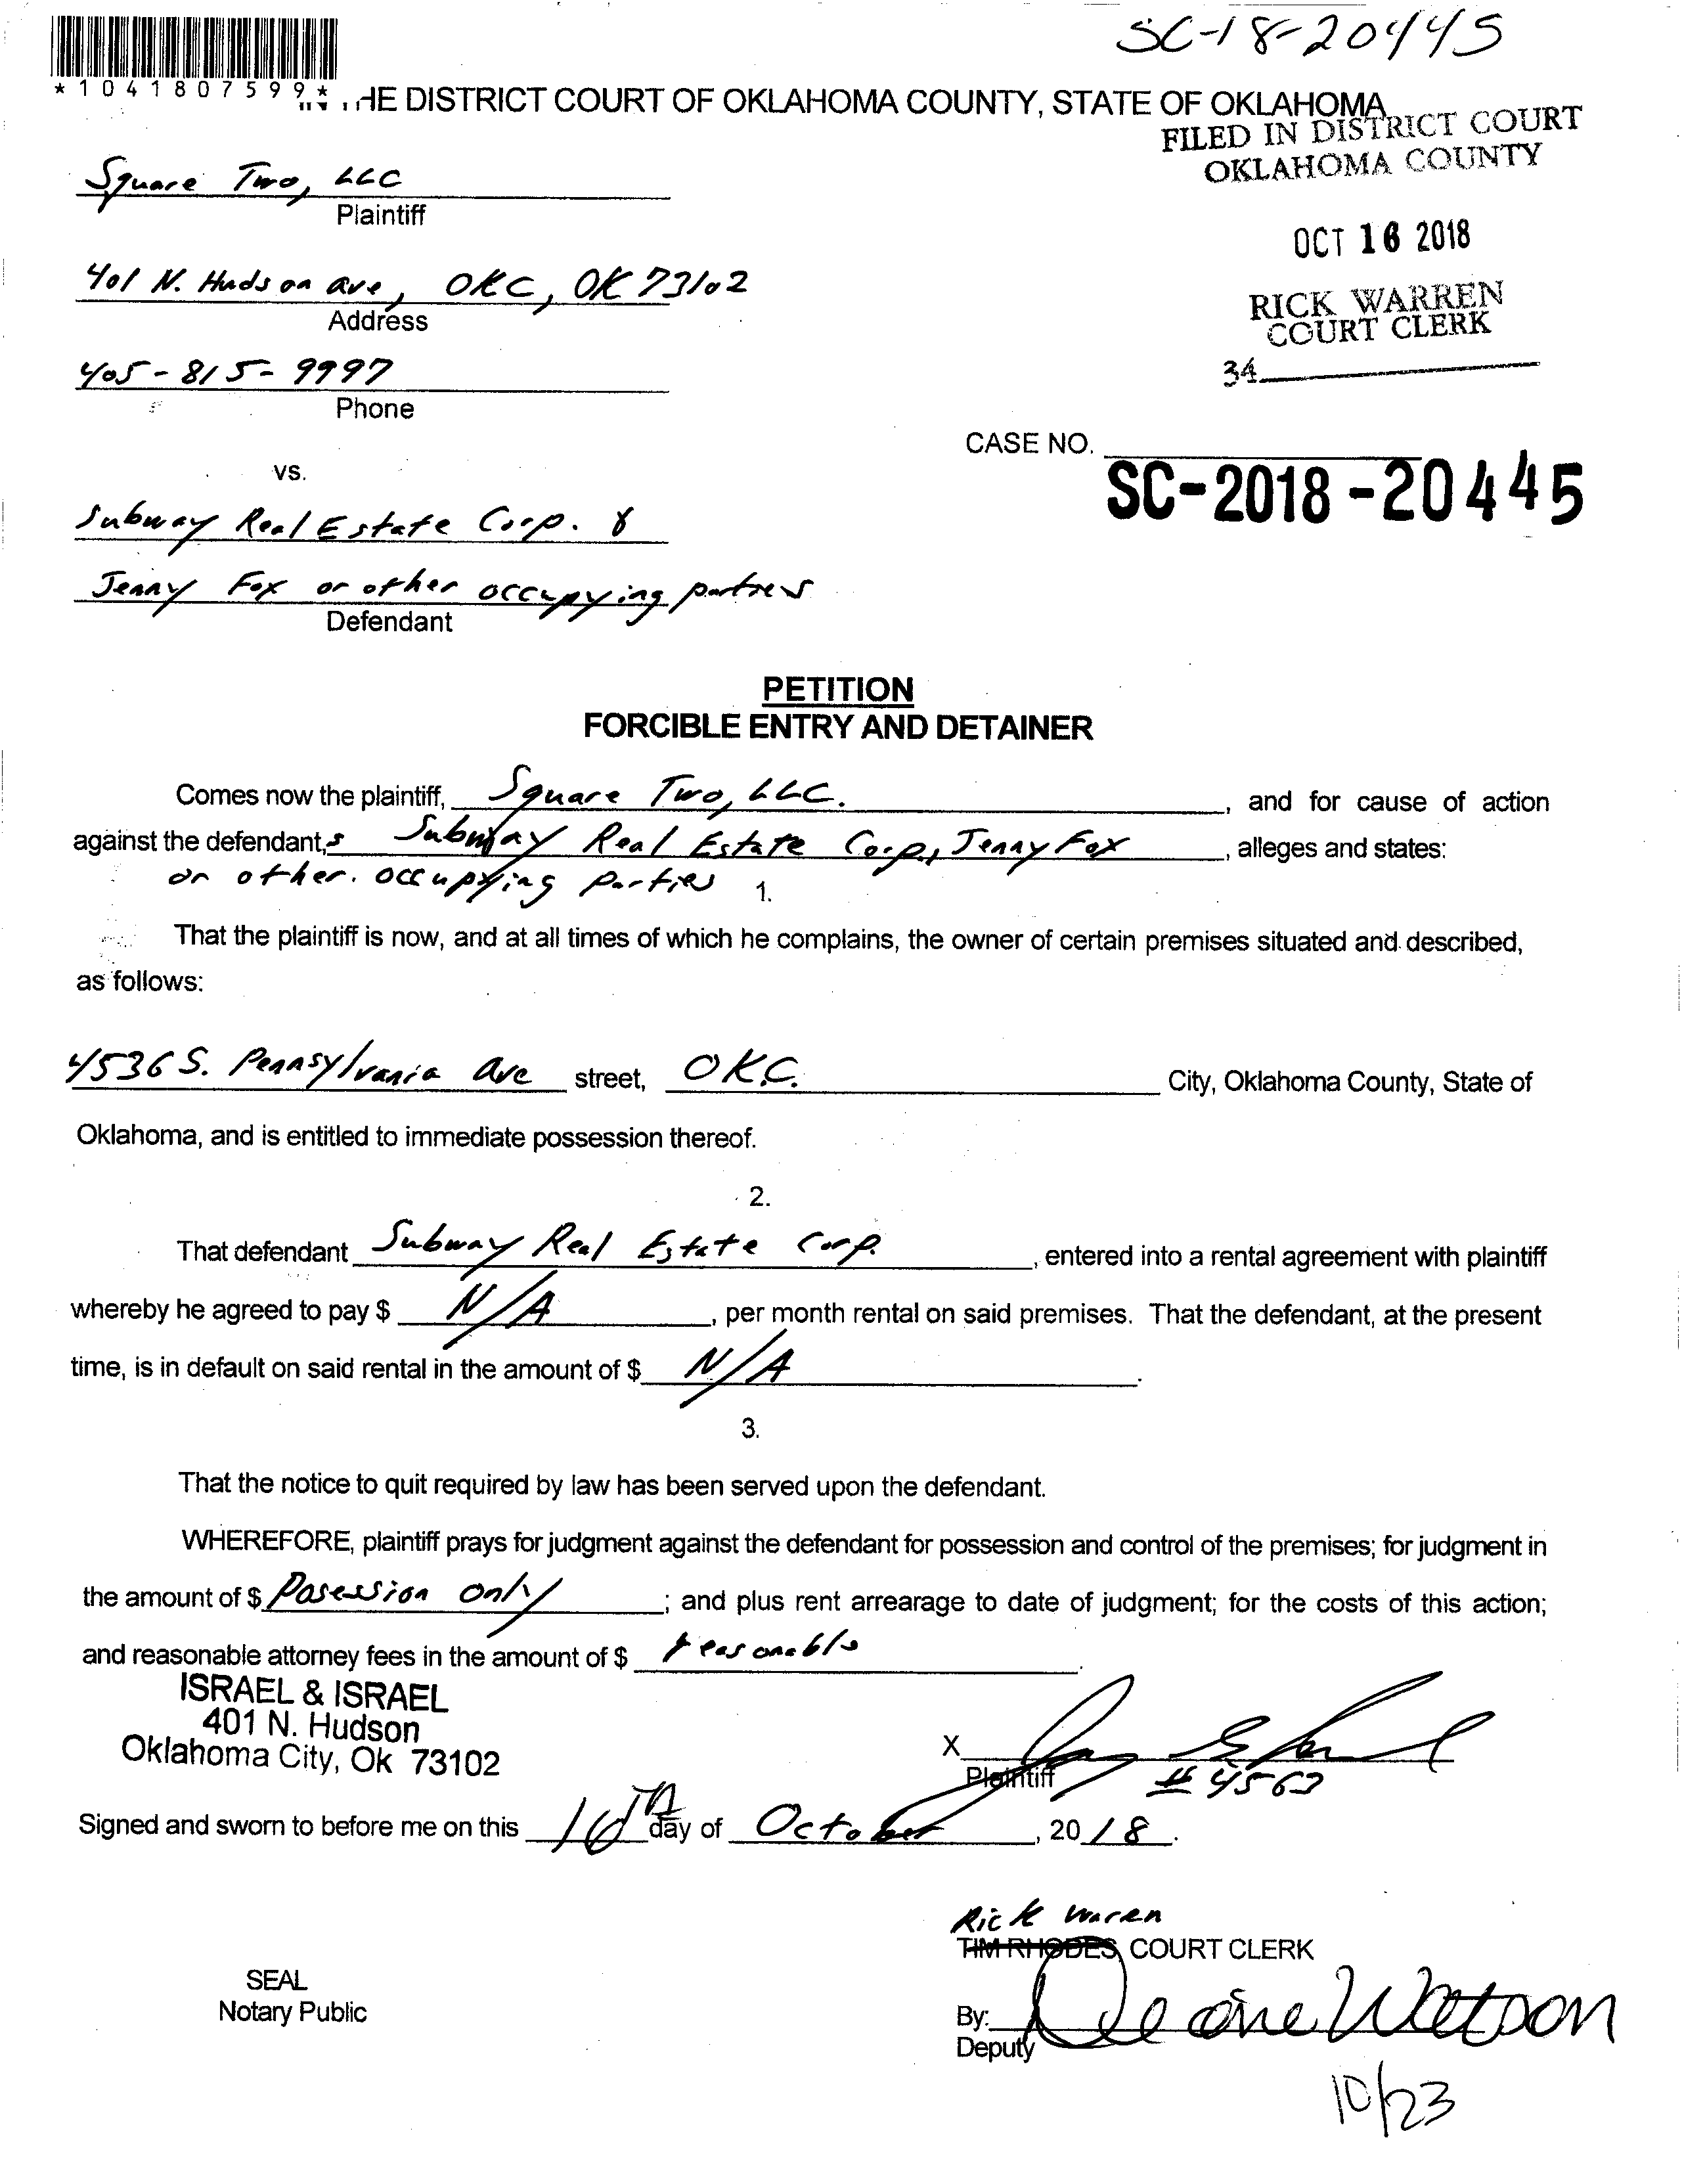 SC-18-20445
*1041807599*
HE DISTRICT COURT OF OKLAHOMA COUNTY, STATE OF OKLAHOMA
FILED IN DISTRICT COURT
OKLAHOMA COUNTY
Square Two, LLC
Plaintiff
OCT 16 2018
401 N. Hudson ave, OKC, OK 73102
Address
RICK WARREN
COURT CLERK
34
405-815-9997
Phone
CASE NO.
SC-2018-20445
vs.
Subway Real Estate Corp. &
Jenny Fox or other occupying parties
Defendant
PETITION
FORCIBLE ENTRY AND DETAINER
Comes now the plaintiff, Square Two, LLC. , and for cause of action
against the defendant,s Subway Real Estate Corp., Jenny Fox , alleges and states:
or other occupying parties
1.
That the plaintiff is now, and at all times of which he complains, the owner of certain premises situated and described,
as follows:
4536 S. Pennsylvania ave street, OKC. City, Oklahoma County, State of
Oklahoma, and is entitled to immediate possession thereof.
2.
That defendant Subway Real Estate Corp. , entered into a rental agreement with plaintiff
whereby he agreed to pay $ N/A , per month rental on said premises. That the defendant, at the present
time, is in default on said rental in the amount of $ N/A .
3.
That the notice to quit required by law has been served upon the defendant.
WHEREFORE, plaintiff prays for judgment against the defendant for possession and control of the premises; for judgment in
the amount of $ Posession only ; and plus rent arrearage to date of judgment; for the costs of this action;
and reasonable attorney fees in the amount of $ reasonable .
ISRAEL & ISRAEL
401 N. Hudson
Oklahoma City, Ok 73102
X
Plaintiff # 4563
Signed and sworn to before me on this 16th day of October , 20 18 .
Rick Waren
TIM RHODES, COURT CLERK
SEAL
Notary Public
By: Watson
Deputy
10/23